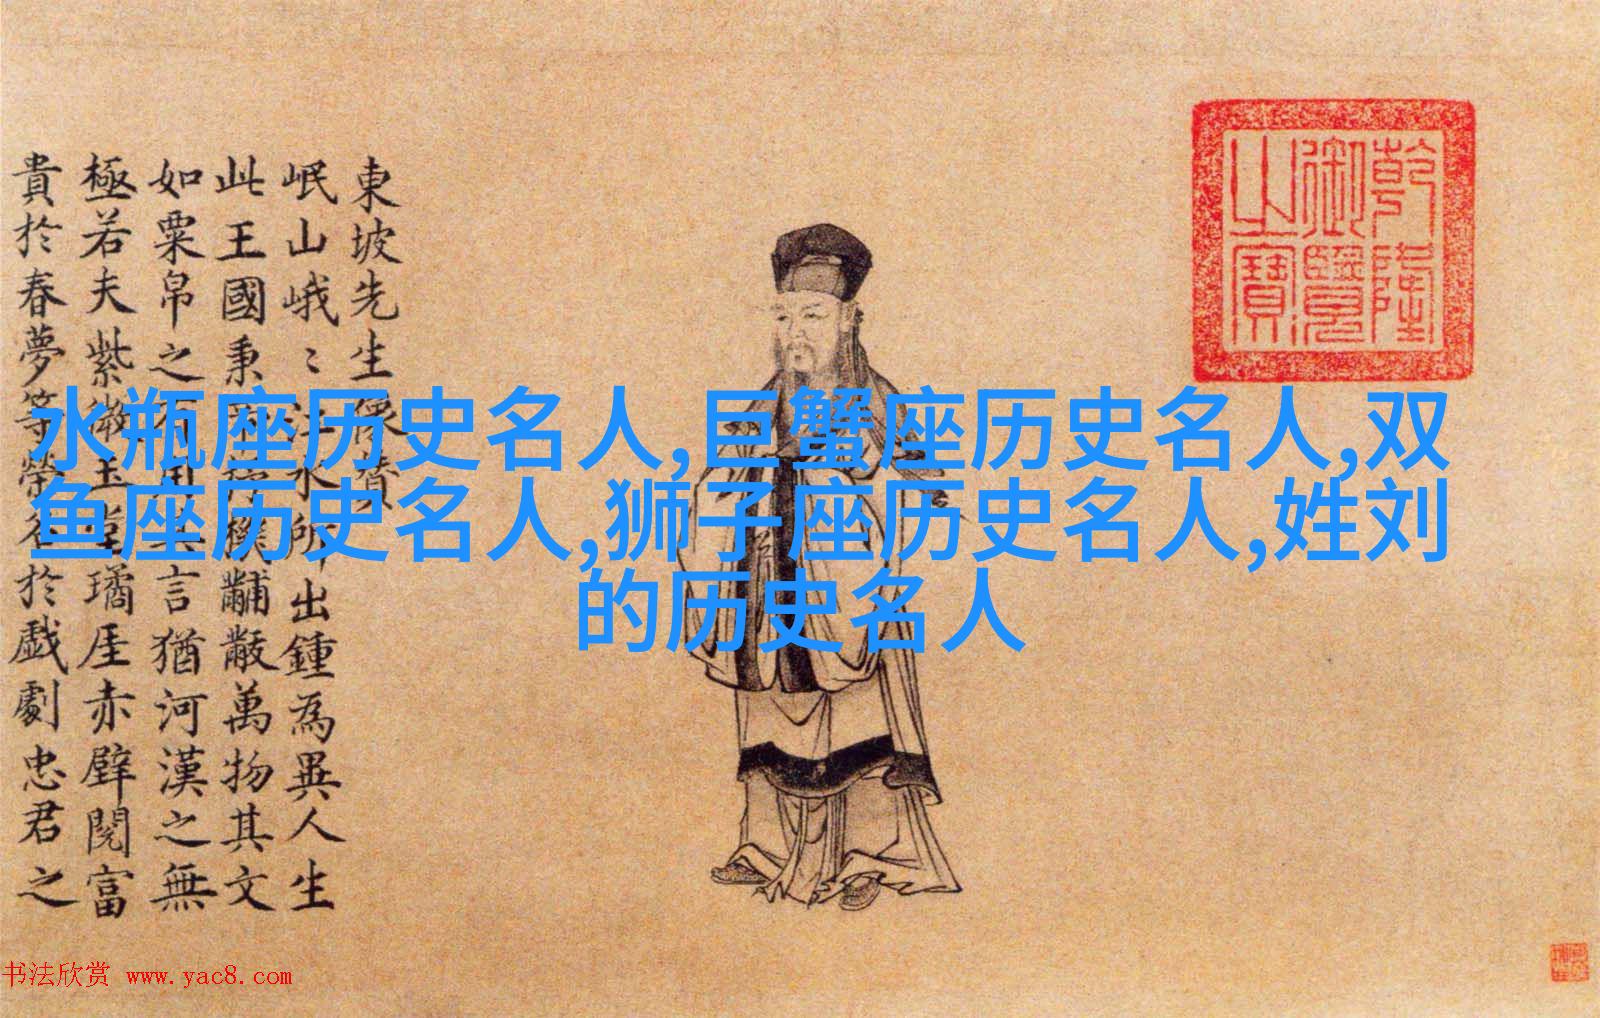 東坡先生像贊
岷山峨〻江水所出鍾為異人生
此王國秉機黼黻萬物其文
如粟帛之有用其言猶河漢之無
極若夫紫微玉堂璚厓赤壁閱富
貴於春夢等榮名於戲劇忠君之
乾隆
御覽
之寶
水瓶座历史名人,巨蟹座历史名人,双
鱼座历史名人,狮子座历史名人,姓刘
的历史名人
书法欣赏 www.yac8.com